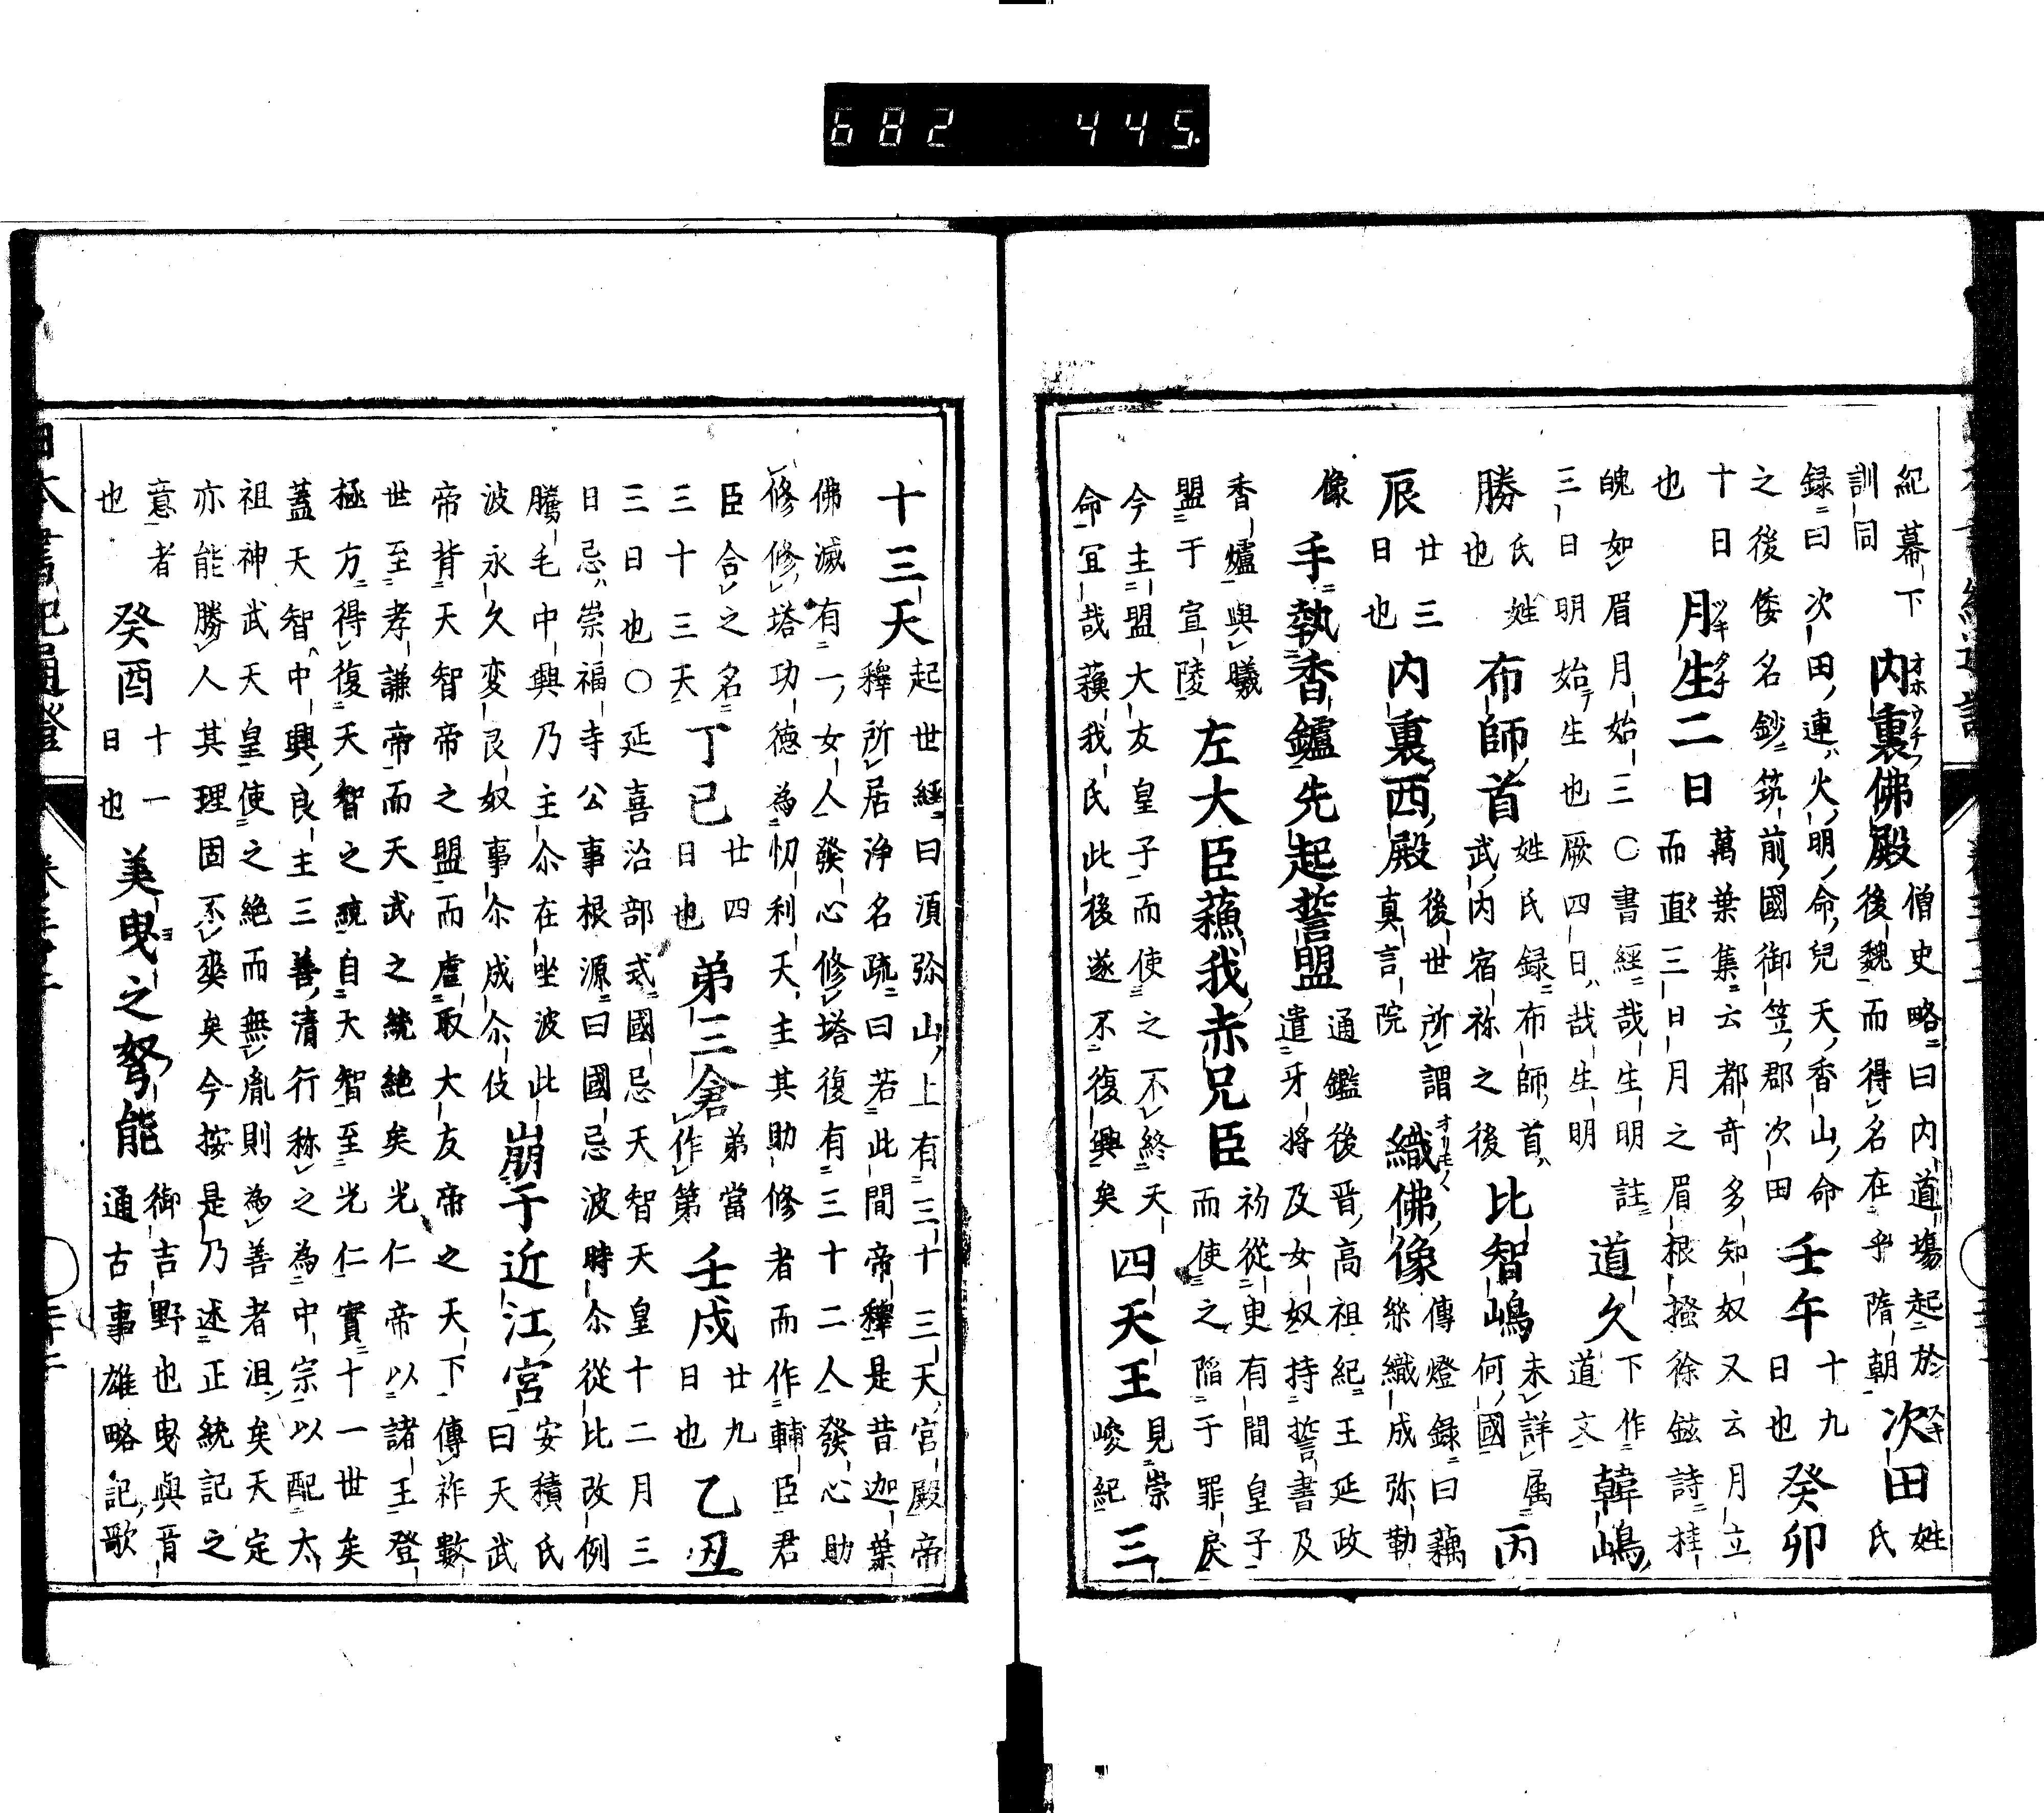 紀幕下訓同 内裏佛殿 僧史略曰内道場起於後魏而得名在乎隋朝 次田 姓氏
録曰次田連火明命兒天香山命之後倭名鈔筑前國御笠郡次田 壬午 十九日也 癸卯
十日也 月生二日 萬葉集云都奇多知奴又云月立而直三日月之眉根掻徐鉉詩桂
魄如眉月始三○書經哉生明註三日明始生也厥四日哉生明 道久 下作道文 韓嶋
勝 氏姓也 布師首 姓氏録布師首武内宿祢之後 比智嶋 未詳属何國 丙
辰 廿三日也 内裏西殿 後世所謂真言院 織佛像 傳燈録曰藕絲織成弥勒
像 手執香鑪先起誓盟 通鑑後晋高祖紀王延政遣牙将及女奴持誓書及
香爐與曦盟于宣陵 左大臣蘓我赤兄臣 初從吏有間皇子而使之陥于罪戻
今主盟大友皇子而使之不終天命宜哉蘓我氏此後遂不復興矣 四天王 見崇峻紀 三
十三天 起世經曰湏弥山上有三十三天宮殿帝釋所居浄名疏曰若此間帝釋是昔迦葉
佛滅有一女人發心修塔復有三十二人發心助修修塔功徳為忉利天主其助修者而作輔臣君
臣合之名三十三天 丁巳 廿四日也 弟三倉 弟當作第 壬戌 廿九日也 乙丑
三日也○延喜治部式國忌天智天皇十二月三日忌崇福寺公事根源曰國忌波時尓從比改例
騰毛中興乃主尓在坐波此波永久変良奴事尓成尓伎 崩于近江宮 安積氏曰天武
帝背天智帝之盟而虐取大友帝之天下傳祚數世至孝謙帝而天武之統絶矣光仁帝以諸王登
極方得復天智之統自天智至光仁實十一世矣蓋天智中興良主三善清行称之為中宗以配太
祖神武天皇使之絶而無胤則為善者沮矣天定亦能勝人其理固不爽矣今按是乃述正統記之
意者也 癸酉 十一日也 美曳之弩能 御吉野也曳與音通古事雄略記歌
日本書紀通證